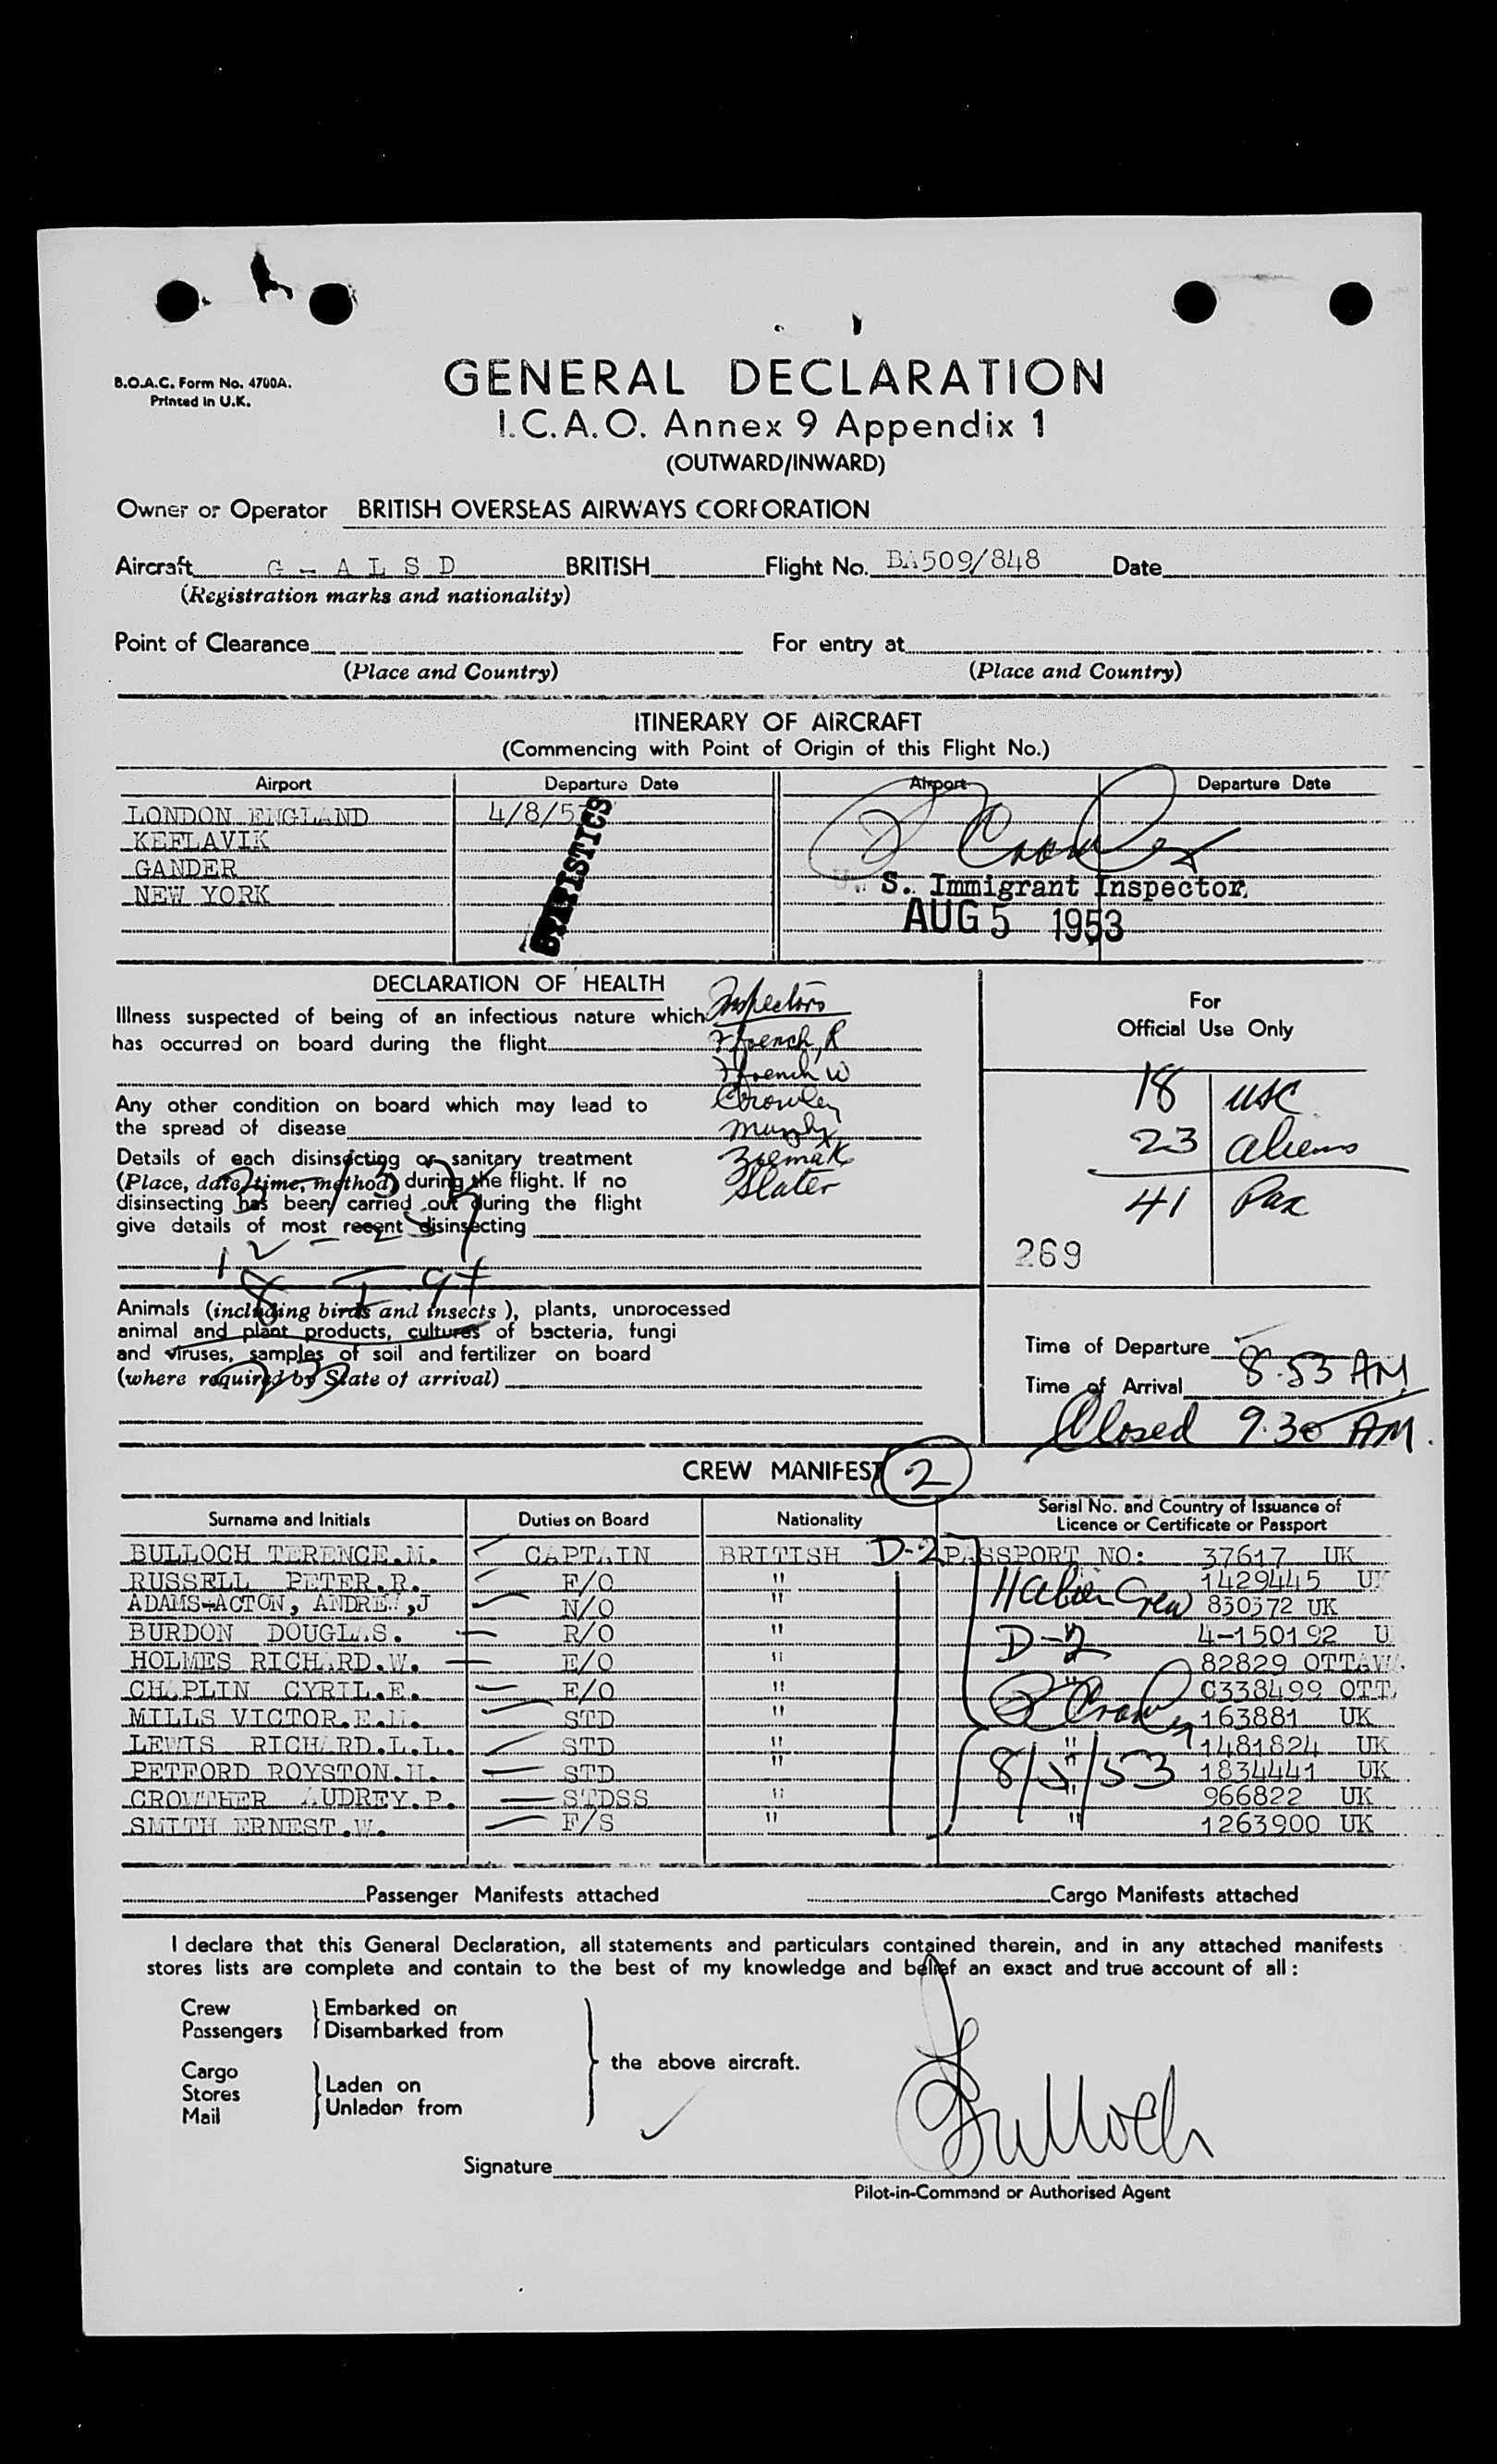 B.O.A.C. Form No. 4700A.
Printed in U.K.
GENERAL DECLARATION
I.C.A.O. Annex 9 Appendix 1
(OUTWARD/INWARD)
Owner or Operator BRITISH OVERSEAS AIRWAYS CORPORATION
Aircraft G - A L S D BRITISH Flight No. BA509/848 Date
(Registration marks and nationality)
Point of Clearance For entry at
(Place and Country) (Place and Country)
ITINERARY OF AIRCRAFT
(Commencing with Point of Origin of this Flight No.)
Airport Departure Date Airport Departure Date
LONDON ENGLAND 4/8/53
KEFLAVIK
GANDER
NEW YORK
STATISTICS
Crowley
U. S. Immigrant Inspector
AUG 5 1953
DECLARATION OF HEALTH
Illness suspected of being of an infectious nature which
has occurred on board during the flight
Any other condition on board which may lead to
the spread of disease
Details of each disinsecting or sanitary treatment
(Place, date, time, method) during the flight. If no
disinsecting has been carried out during the flight
give details of most recent disinsecting
Inspectors
Ffrench, R
Ffrench W
Crowley
Murphy
Ziemak
Slater
For
Official Use Only
18 USC
23 aliens
41 Pax
269
Animals (including birds and insects), plants, unprocessed
animal and plant products, cultures of bacteria, fungi
and viruses, samples of soil and fertilizer on board
(where required by State of arrival)
23
Time of Departure
Time of Arrival 8.53 AM
Closed 9.30 AM.
CREW MANIFEST 2
Surname and Initials Duties on Board Nationality Serial No. and Country of Issuance of
Licence or Certificate or Passport
BULLOCH TERENCE.M. CAPTAIN BRITISH D-2 PASSPORT NO: 37617 UK
RUSSELL PETER.R. F/O " 1429445 UK
ADAMS-ACTON, ANDREW,J N/O " 830372 UK
BURDON DOUGLAS. R/O " 4-150192 U
HOLMES RICHARD.W. E/O " 82829 OTTAWA.
CHAPLIN CYRIL.E. E/O " " C338499 OTT.
MILLS VICTOR.E.M. STD " 163881 UK
LEWIS RICHARD.L.L. STD " " 1481824 UK
PETFORD ROYSTON.H. STD " " 1834441 UK
CROWTHER AUDREY.P. STDSS " " 966822 UK
SMITH ERNEST.W. F/S " " 1263900 UK
Crew
D-2
Crowley
8/5/53
Passenger Manifests attached Cargo Manifests attached
I declare that this General Declaration, all statements and particulars contained therein, and in any attached manifests
stores lists are complete and contain to the best of my knowledge and belief an exact and true account of all:
Crew Embarked on
Passengers Disembarked from
the above aircraft.
Cargo
Stores Laden on
Mail Unladen from
Bulloch
Signature
Pilot-in-Command or Authorised Agent